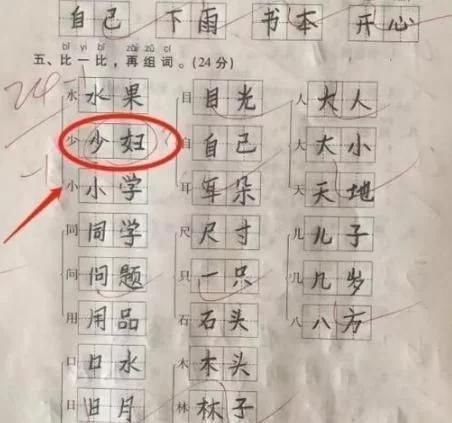 自己 下雨 书本 开心
bǐ yi bǐ zài zǔ cí
五、比一比，再组词。(24分)
水 水果 目 目光 人 大人
少 少妇 自 自己 大 大小
小 小学 耳 耳朵 天 天地
同 同学 尺 尺寸 儿 儿子
问 问题 只 一只 几 几岁
用 用品 石 石头 八 八方
口 口水 木 木头
日 日月 林 林子